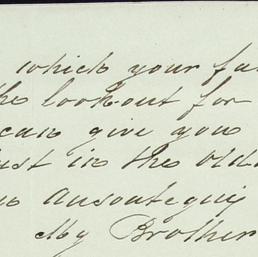 which your fa
the lookout for
can give you
ust in the old
Ansoategui
My Brother